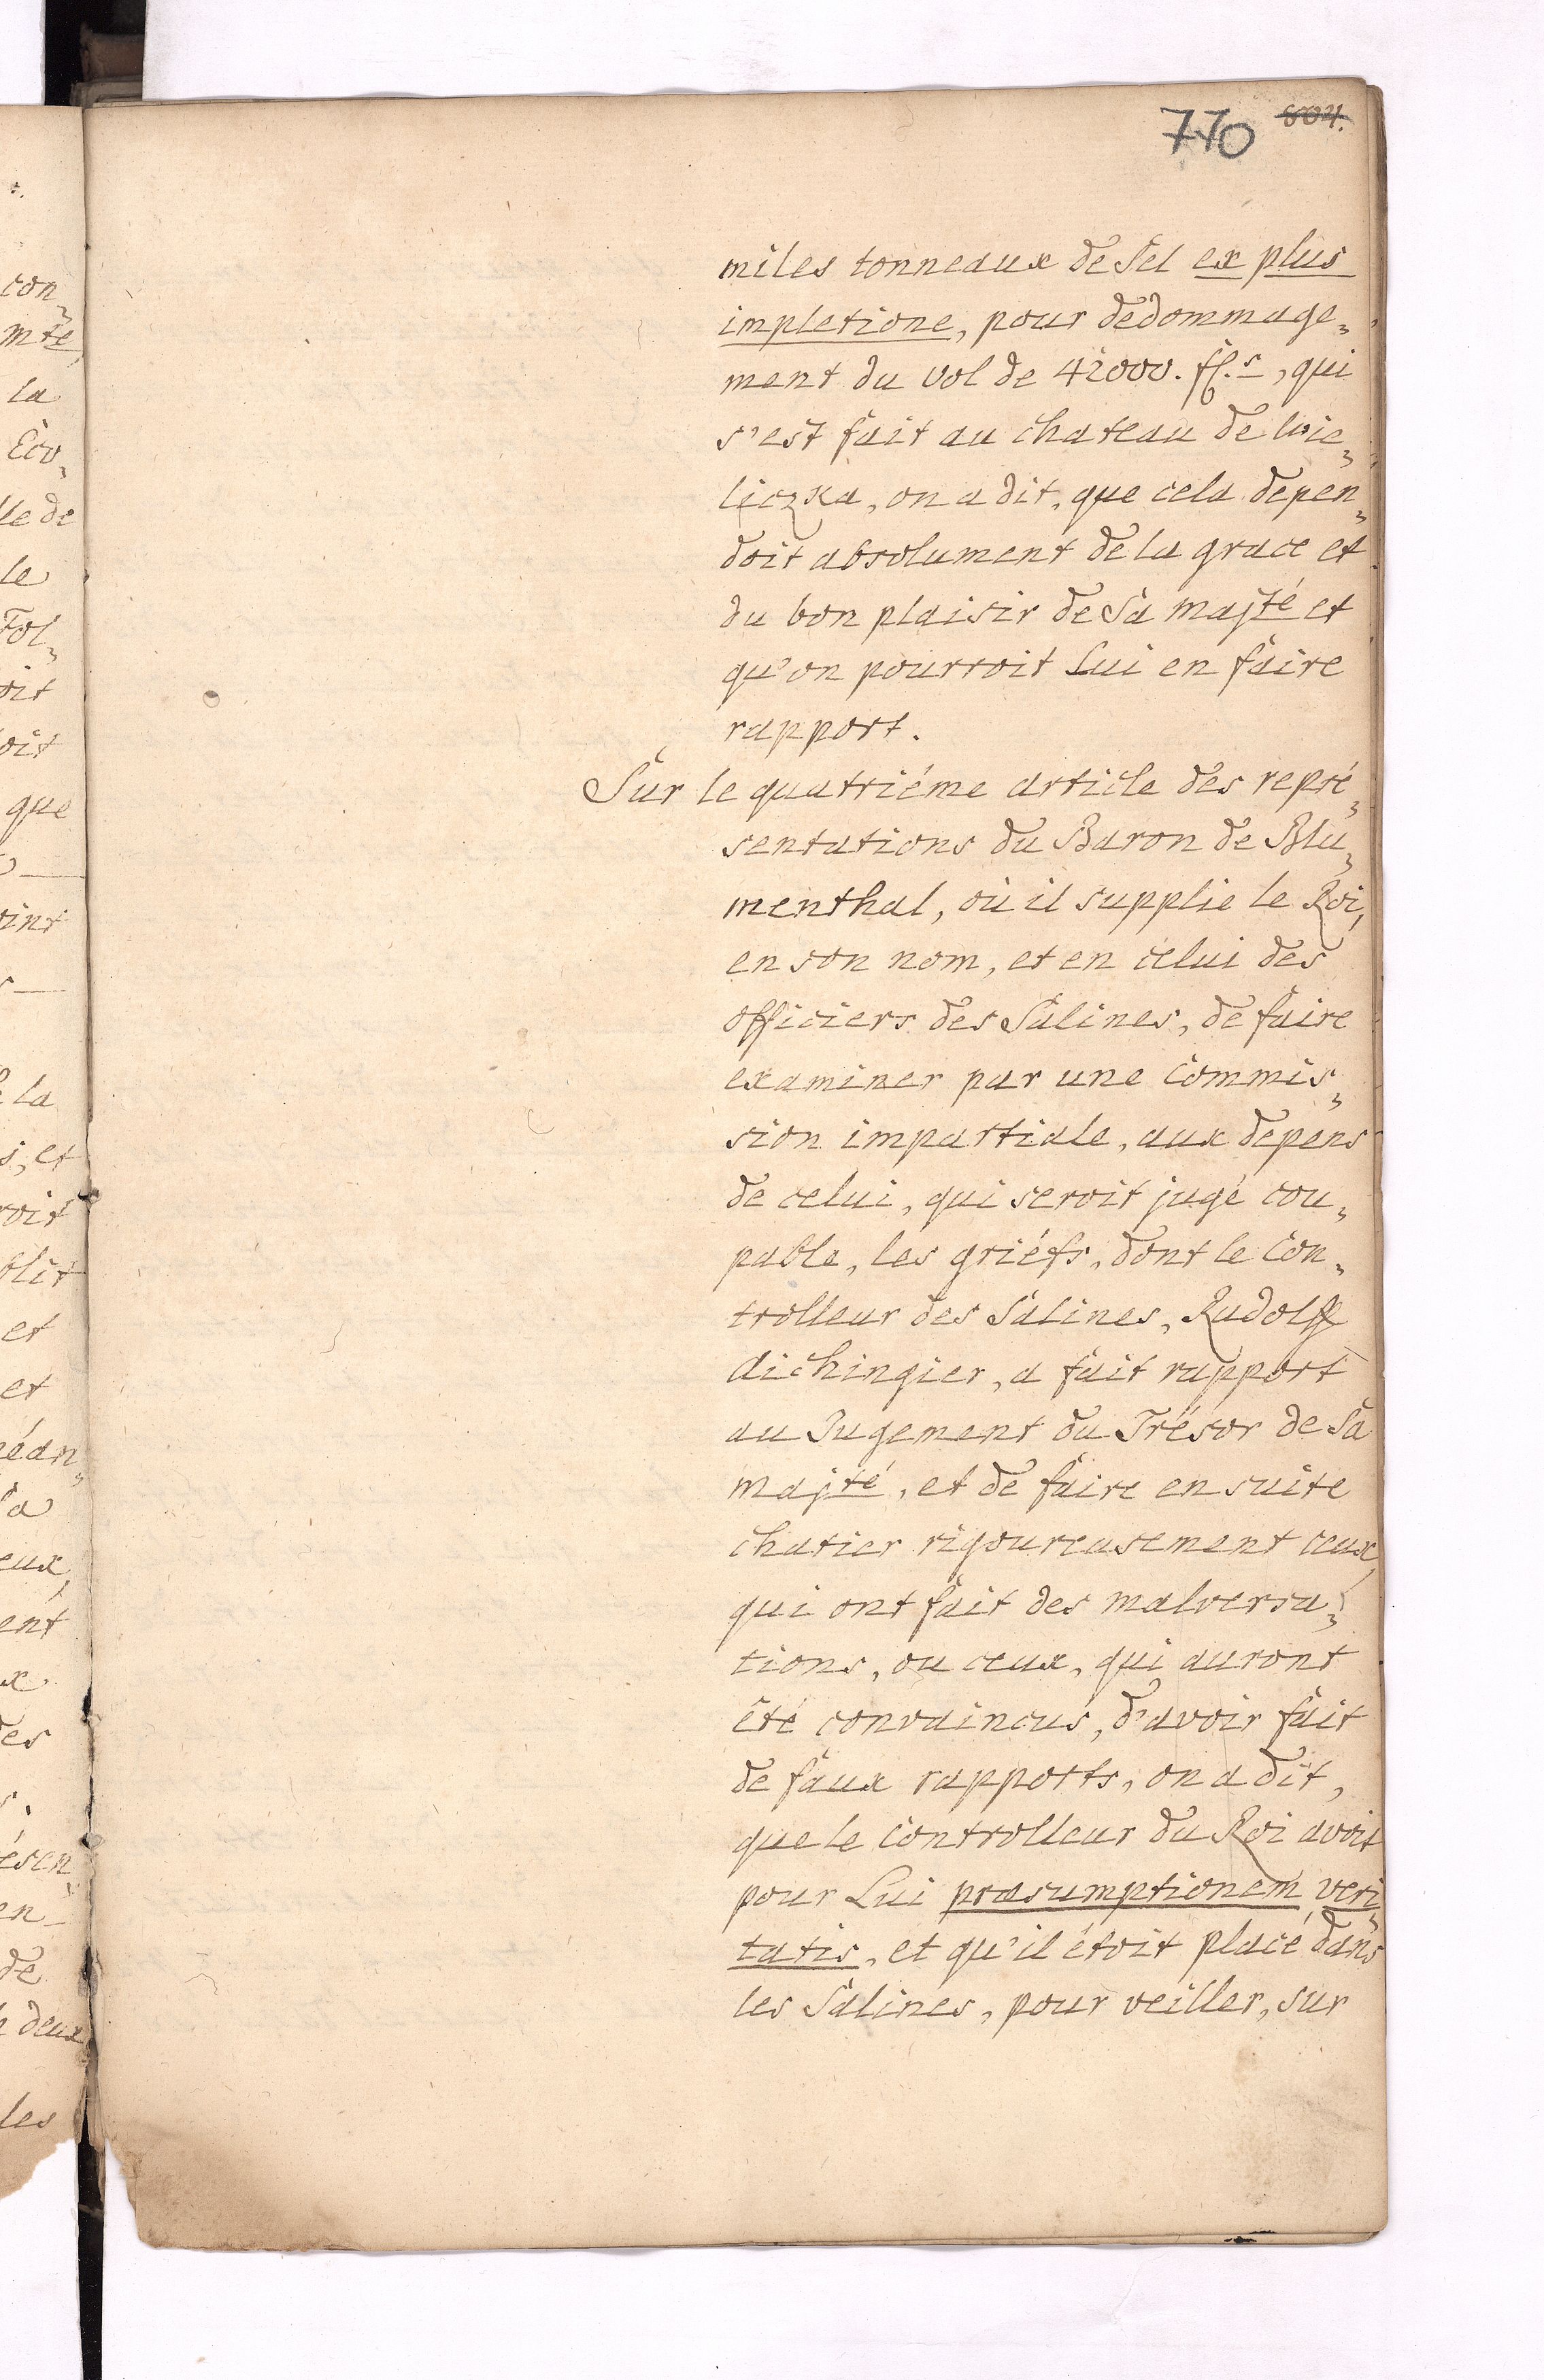 770 804.
miles tonneaux de Sel ex plus
impletione, pour dedommage„
ment du vol de 42000. fl.s, qui
s'est fait au chateau de Wie„
liczka, on a dit, que cela depen„
doit absolument de la grace et
du bon plaisir de Sa Majté et
qu'on pourroit Lui en faire
rapport.
Sur le quatriéme article des repré„
sentations du Baron de Blu„
menthal, où il supplie le Roi,
en son nom, et en celui des
officiers des Salines, de faire
examiner par une Commis„
sion impartiale, aux depens
de celui, qui seroit jugé cou„
pable, les griéfs, dont le Con„
trolleur des Salines, Rudolff
Aichingier, a fait rapport
au Jugement du Trésor de Sa
Majté, et de faire en suite
chatier rigoureusement ceux,
qui ont fait des malversa„
tions, ou ceux, qui auront
été convaincus, d'avoir fait
de faux rapports, on a dit,
que le Controlleur du Roi avoit
pour Lui præsumptionem veri„
tatis, et qu'il étoit placé dans
les Salines, pour veiller, sur
con„
mte
la
Eco„
lle de
le
Fol„
oit
oit
que
oint
la
s, et
roit
olit
et
et
éan„
eux,
ent
x
es
ésen„
en
de
deux
les